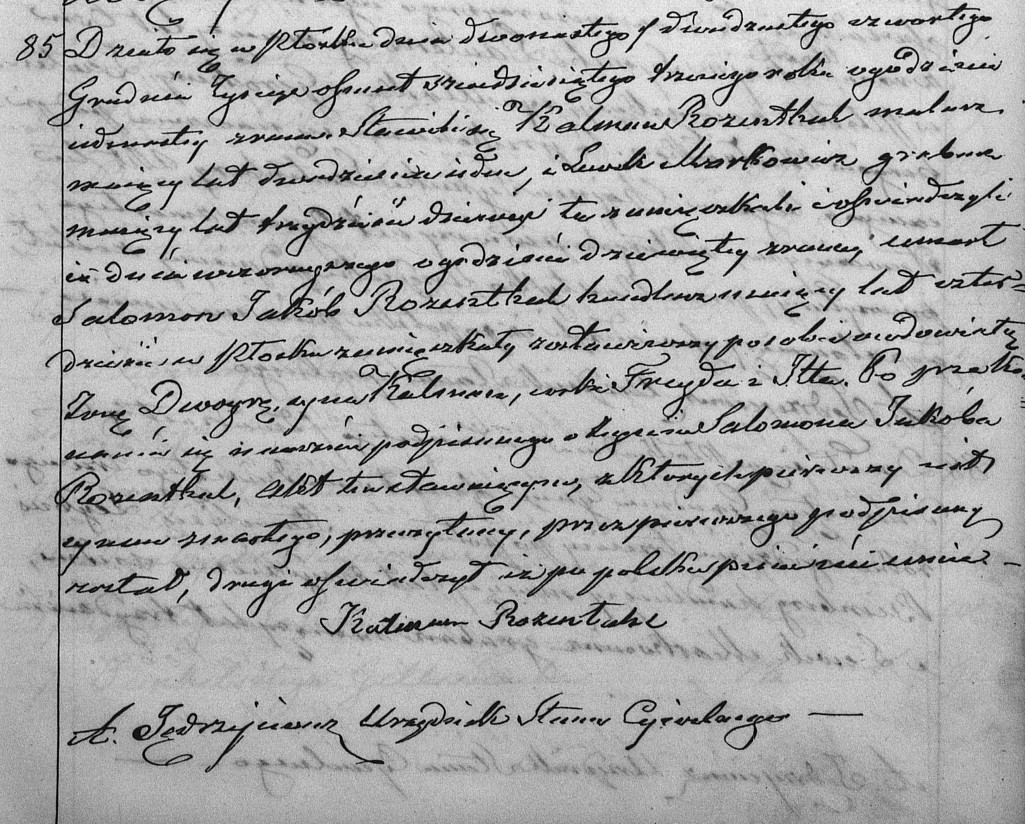 85 Działo się w Płocku dnia dwunastego / dwudziestego czwartego
Grudnia Tysiąc ośmset sześdziesiątego trzeciego roku o godzinie
iedenastey zrana. Stawili się Kalman Rozenthal malarz
maiący lat dwadzieścia ieden, i Lewek Markowicz grabarz
maiący lat trzydzieści dziewięć tu zamięszkali i oświadczyli
iż dnia wczorayszego o godzinie dziewiątey zrana, umarł
Salomon Jakób Rozenthal handlarz maiący lat czter-
dzieści w Płocku zamięszkały zostawiwszy po sobie owdowiałą
Żonę Dwoyrę, syna Kalmana, córki Frayda i Itta. Po przeko-
naniu się naocznie podpisanego o zeyściu Salomona Jakóba
Rozenthal, Akt ten stawaiącym, z których pierwszy iest
synem zmarłego, przeczytany, przez pierwszego podpisany
został, drugi oświadczył iż po polsku pisać nie umie. –
Kalman Rozenthal
A. Jędrzejewicz Urzędnik Stanu Cywilnego —